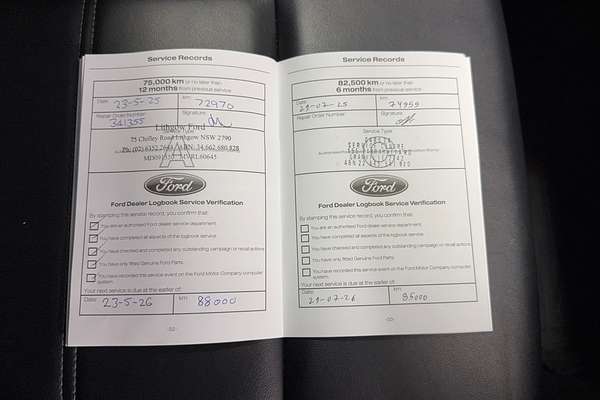 Service Records
75,000 km or no later than
12 months from previous service
Date 23-5-25 km 72970
Repair Order Number Signature
341355
Lithgow Ford
75 Chifley Road Lithgow NSW 2790
Ph: (02) 6352 ABN: 34 662 680 828
Ford
Ford Dealer Logbook Service Verification
By stamping this service record, you confirm that:
You are an authorised Ford dealer service department.
You have completed all aspects of the logbook service.
You have checked and completed any outstanding campaign or recall actions.
You have only fitted Genuine Ford Parts.
You have recorded this service event on the Ford Motor Company computer
system.
Your next service is due at the earlier of:
Date: 23-5-26 km: 88000
-52-
Service Records
82,500 km or no later than
6 months from previous service
Date km
21-07-25
Repair Order Number Signature
Service Type
SERVICE CENTRE
Ford
Ford Dealer Logbook Service Verification
By stamping this service record, you confirm that:
You are an authorised Ford dealer service department.
You have completed all aspects of the logbook service.
You have checked and completed any outstanding campaign or recall actions.
You have only fitted Genuine Ford Parts.
You have recorded this service event on the Ford Motor Company computer
system.
Your next service is due at the earlier of:
Date: 21-07-26 km: 85000
-53-